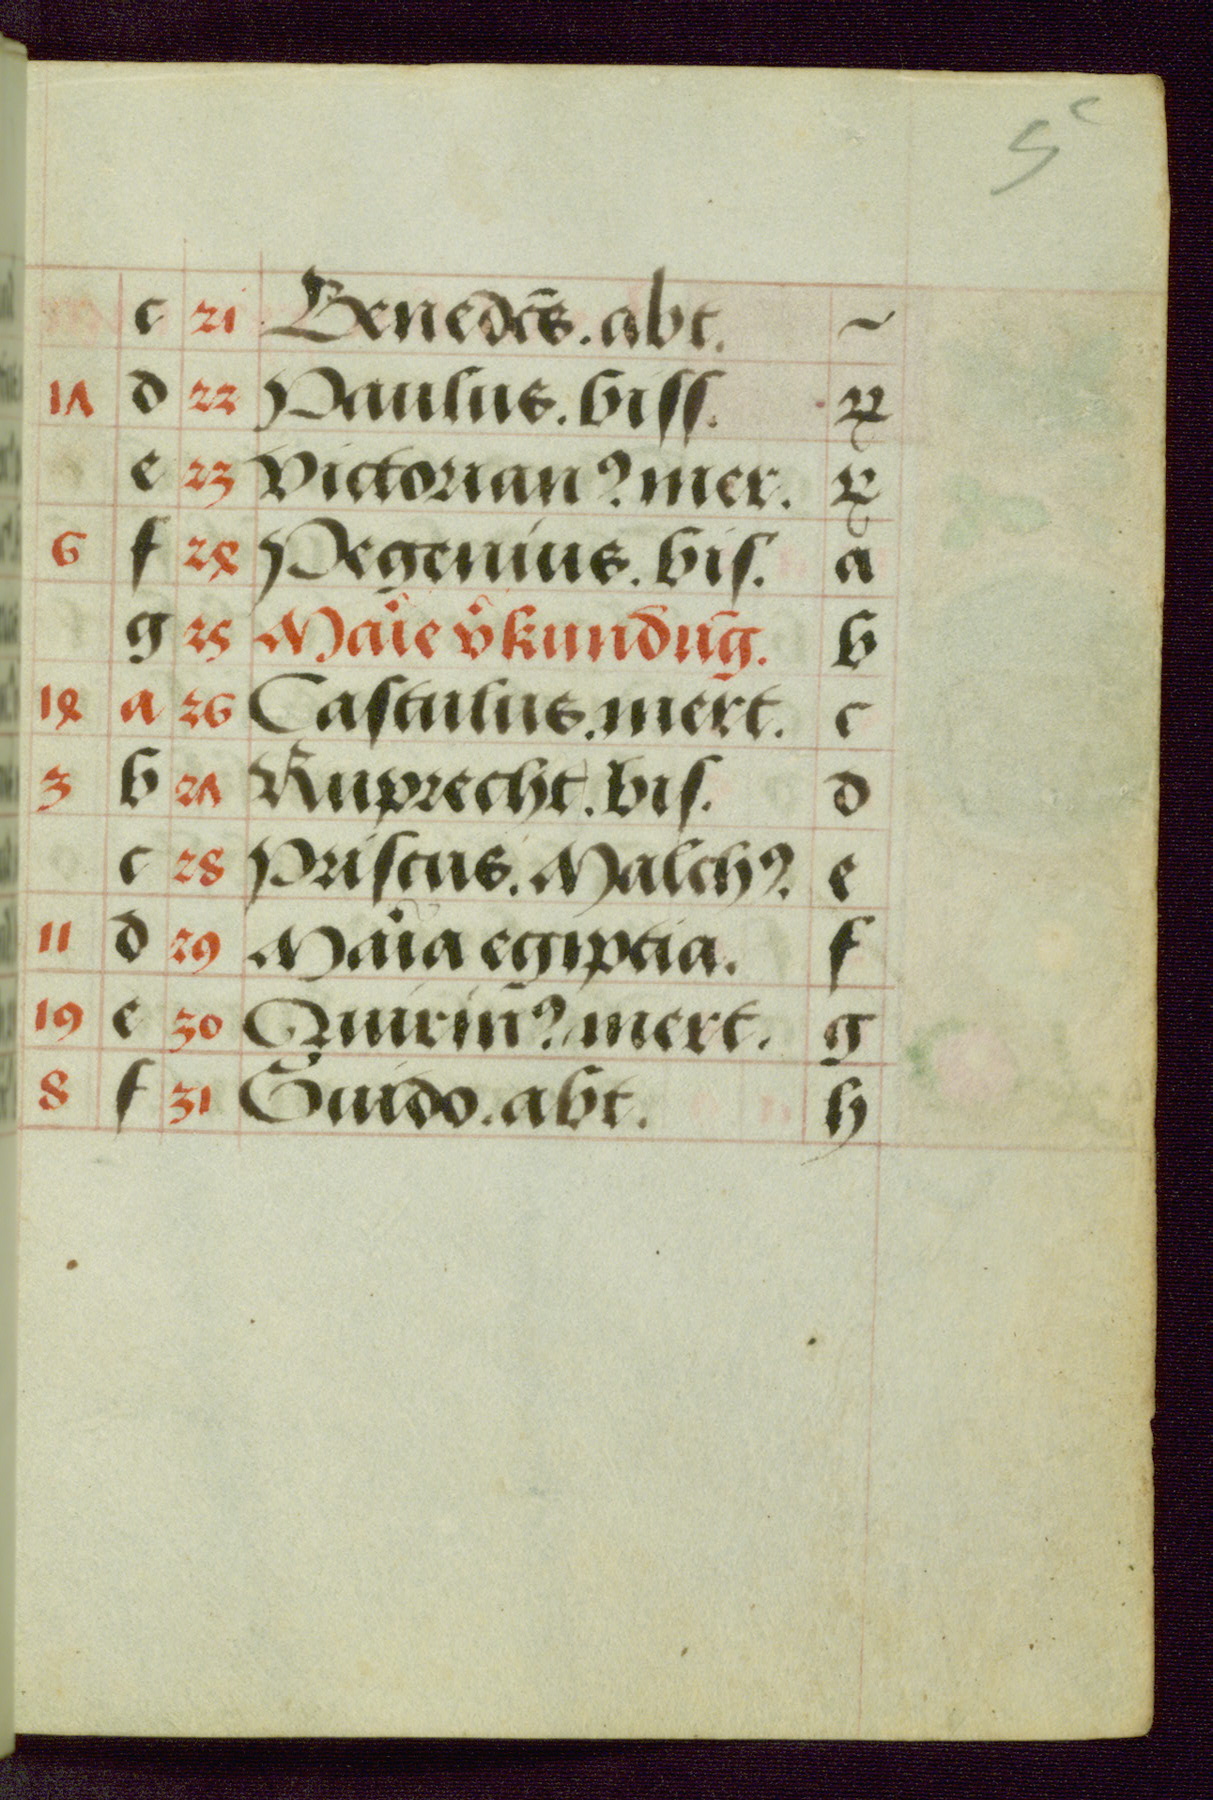 5c
c 21 Benedcs̄. abt. ~
17 d 22 Paulus. biss. ꝝ
e 23 Victorianꝰ mer. ꝝ
6 f 24 Pegenius. bis. a
g 25 Maͥie vͦkundūg. b
14 a 26 Castulus. mert. c
3 b 27 Ruprecht. bis. d
c 28 Priscus. Malchꝰ. e
11 d 29 Maͥia egiptia. f
19 e 30 Quirin̄ꝰ mert. g
8 f 31 Guido. abt. h